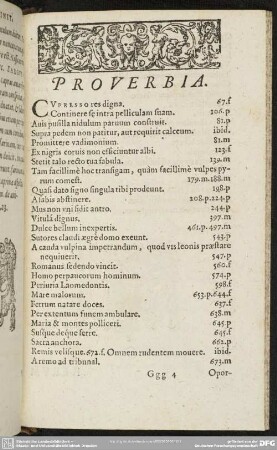 PROVERBIA.
CVPRESSO res digna, 67.f
Continere se intra pelliculam suam. 206.p
Auis pusilla nidulum paruum construit. 82.p
Supra pedem non patitur, aut requirit calceum. ibid.
Promittere vadimonium. 81.p
Ex nigris coruis non efficiuntur albi. 123.f
Stetit talo recto tua fabula. 139.m
Tam facillimè hoc transigam, quàm facillimè vulpes py-
rum comest. 179.m.188.m
Quasi dato signo singula tibi prodeunt. 198.p
A fabis abstinere. 208.p.224.p
Mus non vni fidit antro. 244.p
Vitulâ dignus. 397.m
Dulce bellum inexpertis. 461.p.497.m
Sutores claudi ægrè domo exeunt. 543.p
A cauda vulpina impetrandum, quod vis leonis præstare
nequiuerit. 547.p
Romanus sedendo vincit. 560.f
Homo perpaucorum hominum. 574.p
Periuria Laomedontis. 598.f
Mare malorum. 652.p.644.f
Ferrum natare doces. 637.f
Per extentum funem ambulare. 638.m
Maria & montes polliceri. 645.p
Susque deque ferre. 645.f
Sacra anchora. 662.p
Remis velisque. 672.f. Omnem rudentem mouere. ibid.
A remo ad tribunal. 673.m
Ggg 4 Opor-